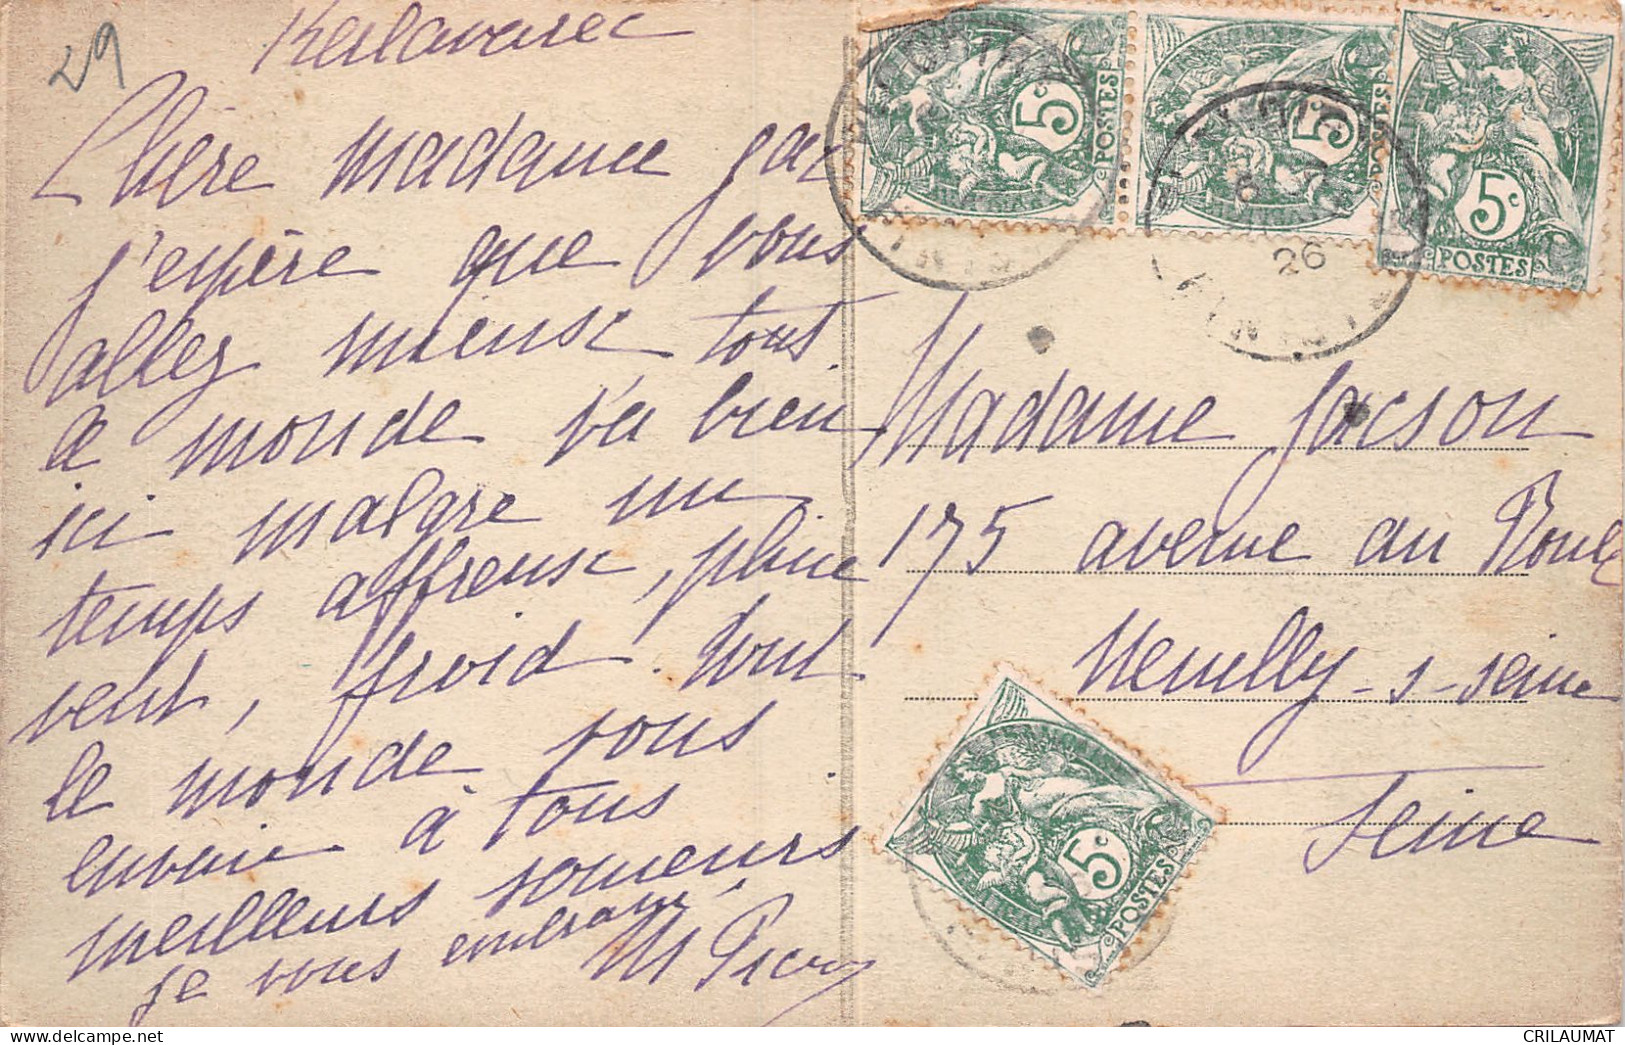 29
Kerlavarec
Chère madame Jac
j'espère que vous
allez mieux tout
le monde va bien
ici malgre un
temps affreux, pluie
vent, froid. Tout
le monde vous
envoie à tous
meilleurs
je vous embrasse
M
5c POSTES
5c POSTES
5c POSTES
26
Madame Jacson
175 avenue du Roule
Neuilly-s-Seine
Seine
5c POSTES
CRILAUMAT